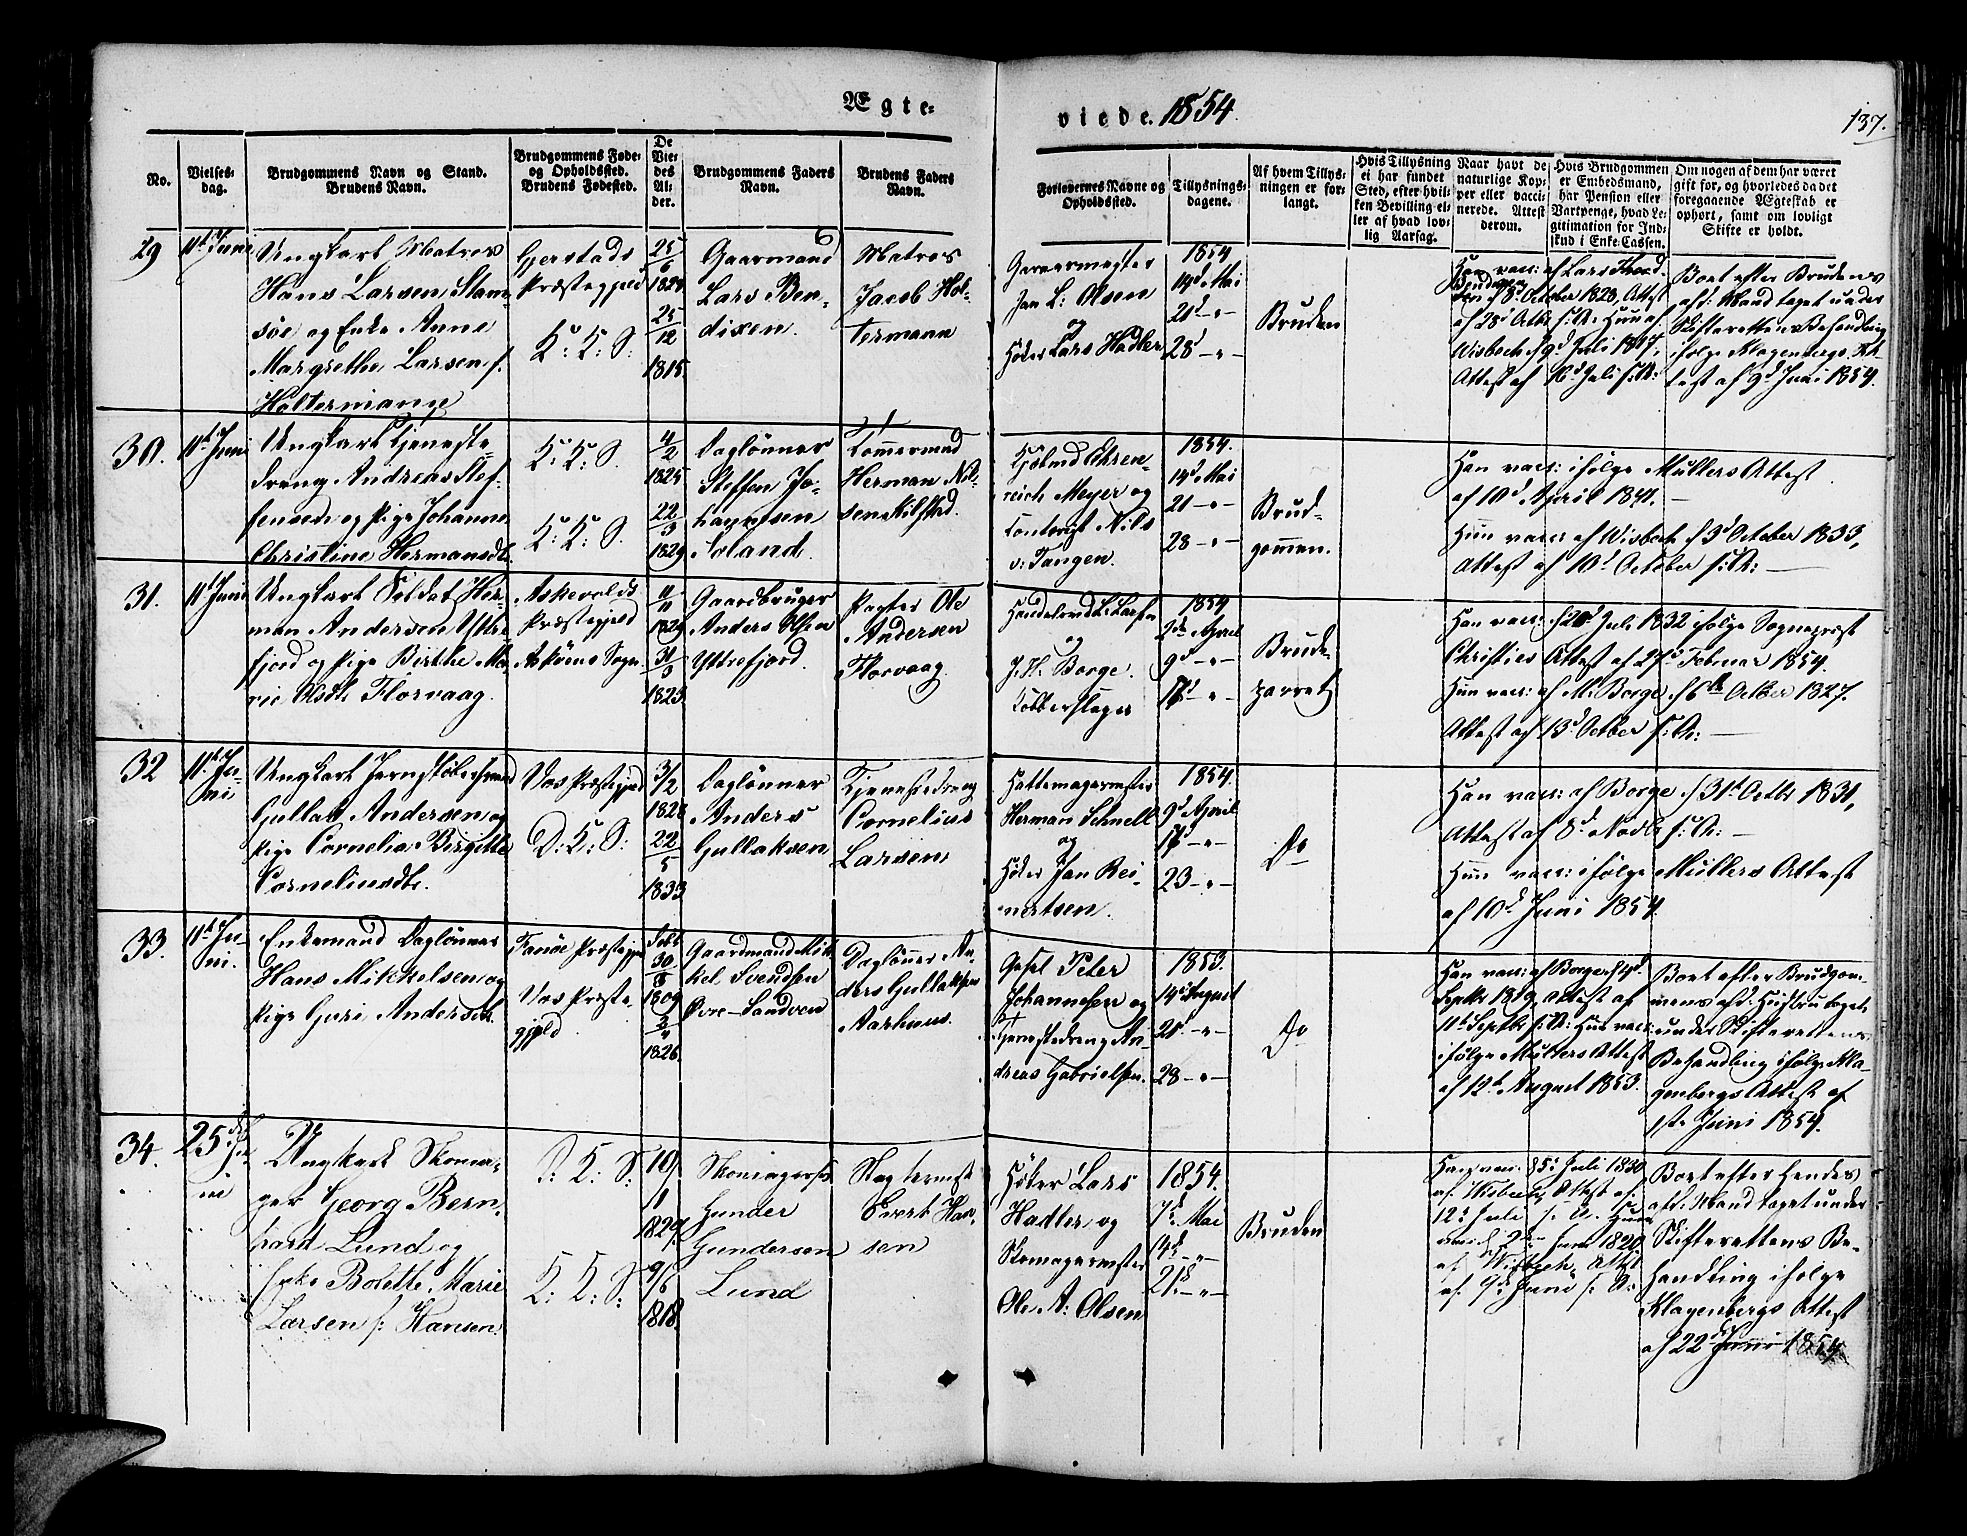 Ægte-
viede. 1854.
137.
No.
Vielses-
dag.
Brudgommens Navn og Stand.
Brudens Navn.
Brudgommens Føde-
og Opholdssted.
Brudens Fødested.
De
Vie-
des
Al-
der.
Brudgommens Faders
Navn.
Brudens Faders
Navn.
Forlovernes Navne og
Opholdssted.
Tillysnings-
dagene.
Af hvem Tillys-
ningen er for-
langt.
Hvis Tillysning
ei har fundet
Sted, efter hvil-
ken Bevilling el-
ler af hvad lov-
lig Aarsag.
Naar havt de
naturlige Kop-
per eller vacci-
nerede. Attest
derom.
Hvis Brudgommen
er Embedsmand,
har Pension eller
Vartpenge, hvad Le-
gitimation for Ind-
skud i Enke-Cassen.
Om nogen af dem har været
gift før, og hvorledes da det
foregaaende Ægteskab er
ophørt, samt om lovligt
Skifte er holdt.
29
11te Juni
Ungkarl Matros
Hans Larsen
og Enke Anne
Margrethe Larsen f.
Holtermann
Gjerstads
Præstegjeld
K: K: S.
25/6
25/12
1815.
Gaarmand
Lars Ben-
dixen.
Matros
Jacob Hol-
termann
Jan L: Olsen
og
Høker Lars Hadler
1854
14d Mai
21d -"-
28 -"-
Bruden
Han vacc: af Lars
den 8d October 1828, Attest
af 28d Octbr s: A: Hun af
Wisbech d 9d Juli 1817,
Attest af 16d Juli s: A:
Bort efter Brudens
afd: Mand taget under
Skifterettens Behandling
ifølge Klagenbergs At-
test af 9d Juni 1854.
30.
11te Juni
Ungkarl Tjeneste-
dreng Andreas Stef-
fensen og Pige Johanne
Christine Hermansdtr.
K: K: S.
K: K: S.
4/2
1825
22/3
1829
Daglönner
Steffen Jo-
hannesen
Soland.
Tømmermand
Herman Nil-
sen Kilstad.
Kjøbmd Ehren-
reich Meyer og
Contorist Nils
v: Tangen.
1854.
14d Mai
21 -"-
28 -"-
Brud-
gommen.
Han vacc: ifølge Müllers Attest
af 10d April 1841. —
Hun vacc: af Wisbech d 3d October 1833,
Attest af 10d October s: A: —
31.
11te Juni
Ungkarl Soldat Her-
man Andersen Yttre-
fjord og Pige Birthe Ma-
rie Olsdtr Florvaag.
Askevolds
Præstegjeld
Askøens Sogn.
11/11
1829
31/3
1825.
Gaardbruger
Anders Olsen
Yttrefjord.
Pagter Ole
Andersen
Florvaag
og
J. H. Borge.
Kobberslager
1854
2den April
9d -"-
17d -"-
Brude-
parret
Han vacc: Juli 1832 ifølge Sognepræst
Christies Attest af 27d Februar 1854.
Hun vacc: af M: Borge d 6te Octber 1827.
Attest af 13d October s: A: —
32
11te Ju-
ni
Ungkarl Jernstøbersvend
Gullak Andersen og
Pige Cornelia Birgitte
Corneliusdtr.
Vos Præstegjeld
D: K: S:
3/2
1828
22/5
1833
Daglönner
Anders
Gullaksen
Tjenestedreng
Cornelius
Larsen
Hattemagermester
Herman Schnell
og
Høker Jan Rei-
nertsen.
1854.
9d April
17d -"-
23 -"-
Do
Han vacc: af Borge d 31te Octbr 1831,
Attest af 8d Novbr s: A: —
Hun vacc: ifølge Müllers Attest
af 10d Juni 1854.
33.
11te Ju-
ni.
Enkemand Daglönner
Hans Mikkelsen og
Pige Guri Andersdtr.
Fanøe Præstegjeld
Vos Præste-
gjeld
1809
1826.
Gaardmand Mik-
kel Svendsen
Øvre-Sandven
Daglönner An-
ders Gullaksen
Aarhuus.
Gesel Peter
Johannesen og
Tjenestedreng An-
dreas Gabrielsen.
1853.
14d August
21d -"-
28 -"-
Do
Septbr 1819, Attest af
11te Septbr s: A: Hun vacc:
ifølge Müllers Attest
af 12te August 1853.
Bort efter Brudgom-
mens afd: Hustru taget
under Skifterettens
Behandling ifølge Kla-
genbergs Attest af
1ste Juni 1854.
34.
25de Ju-
ni
Ungkarl Skoma-
ger Georg Bern-
hard Lund og
Enke Bolette Marie
Larsen f: Hansen.
D: K: S:
K: K: S:
10/1
1827.
9/6
1818.
Skomagermst
Gunder
Gundersen
Lund
Slagtermst
Evert Han-
sen
Høker Lars
Hadler og
Skomagermester
Ole A: Olsen
1854.
7d Mai
14d -"-
21d -"-
Bruden
Han vacc: 5: Juli 1830
af Wisbech, Attest af
12d Juli s: A. Hun
Juni 1820
af Wisbech, Attst
af 9d Juni s: A:
Bort efter hendes
afd: Mand taget under
Skifterettens Be-
handling ifølge
Klagenbergs Attest
af 22d Juni 1854.